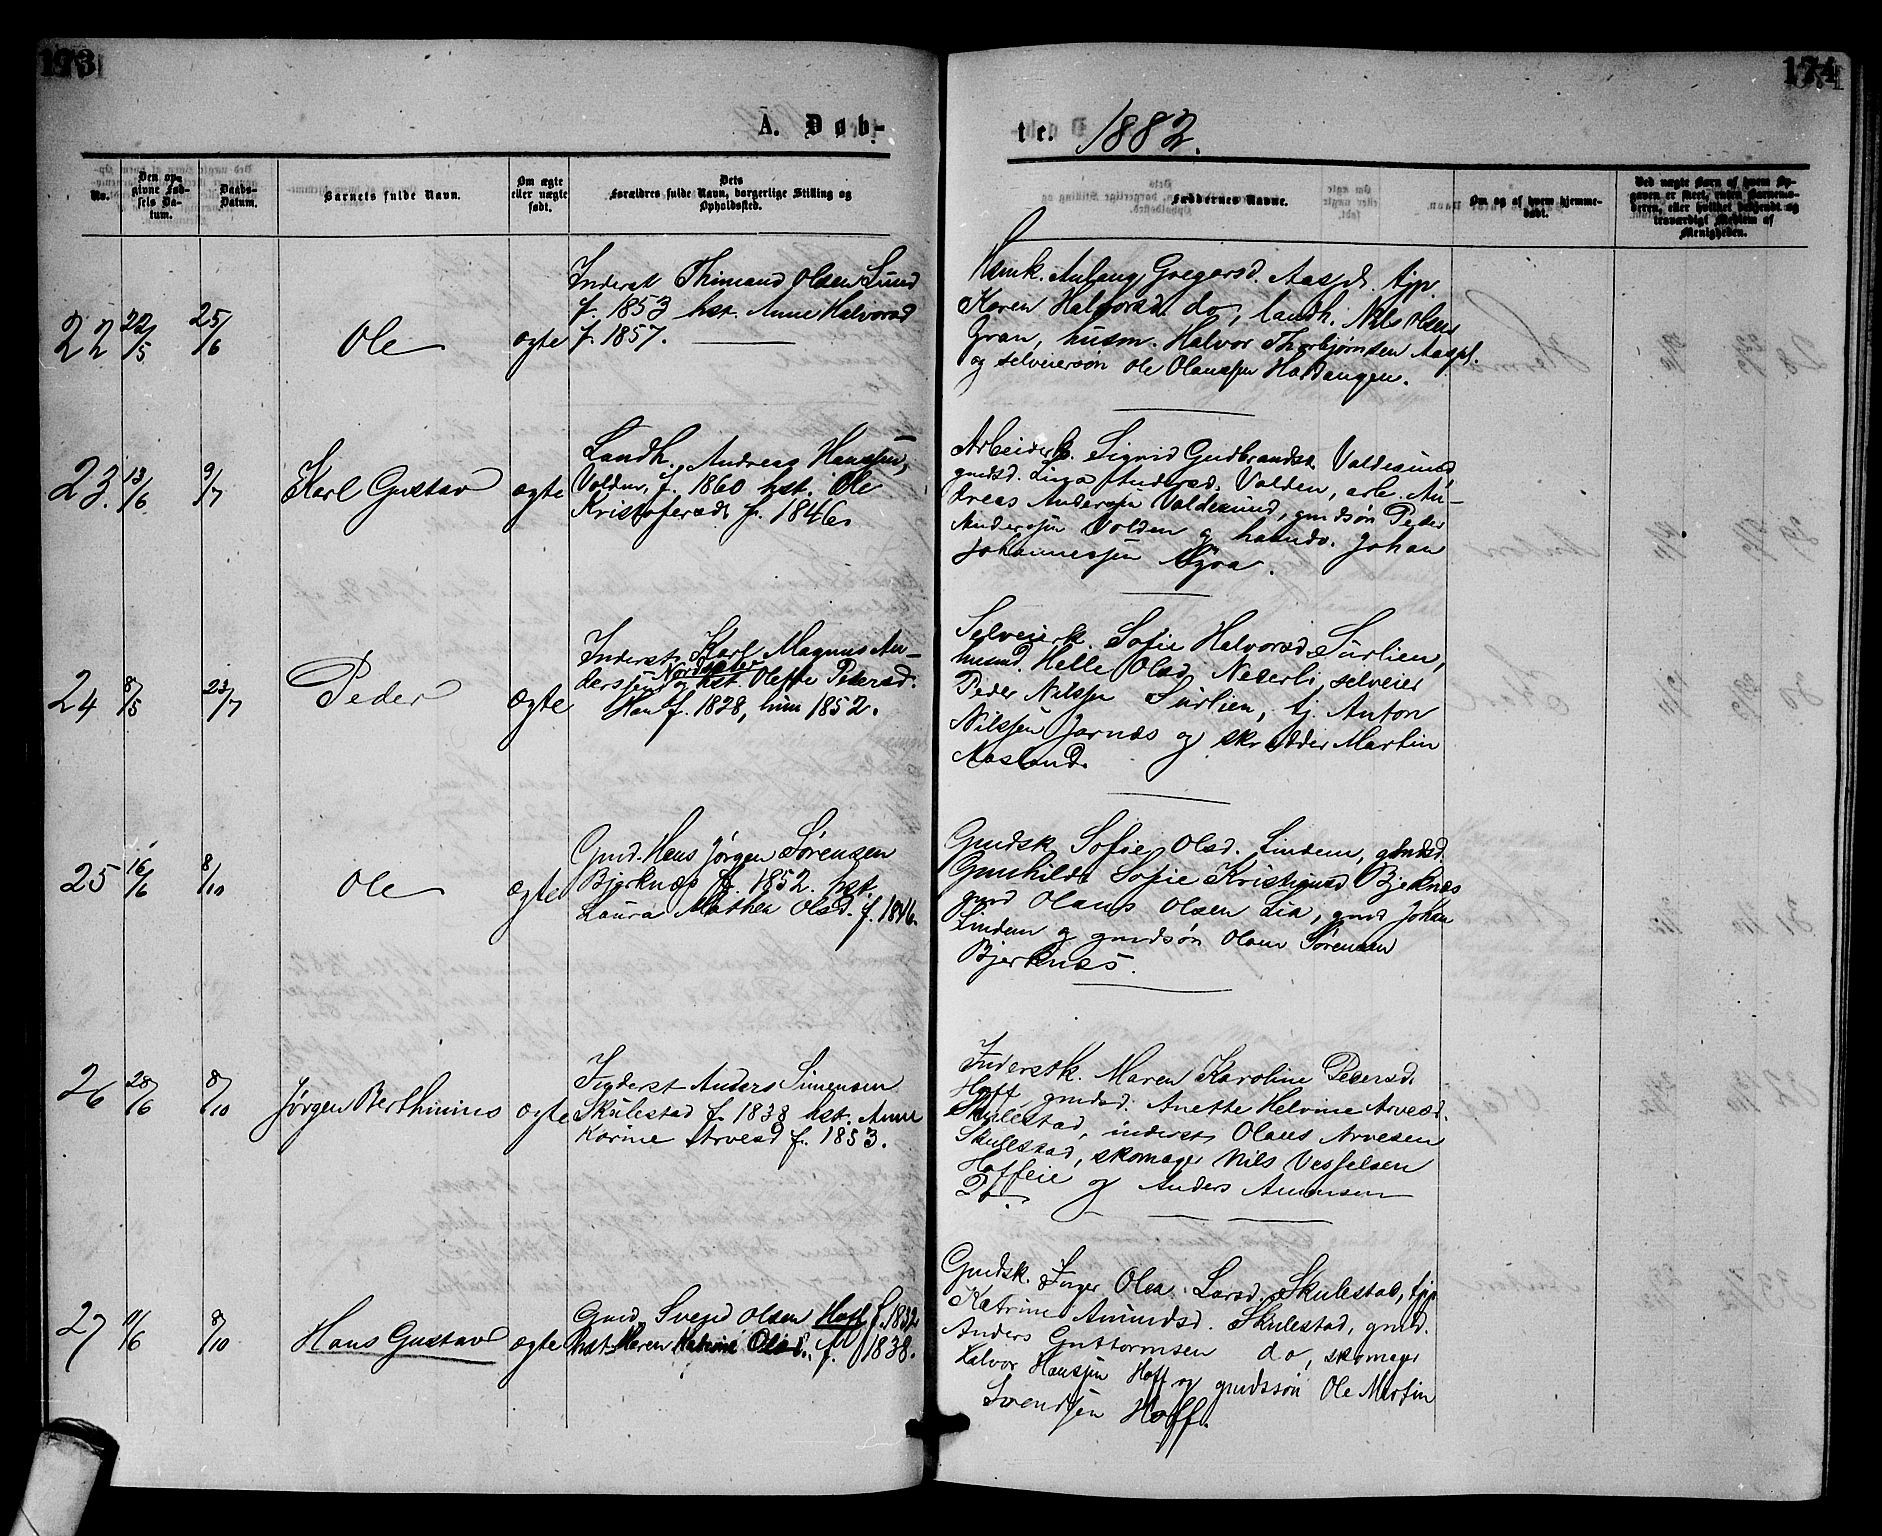 173
174
A. Døb-
te. 1882.
No.
Den op-
givne Fød-
sels Da-
tum.
Daabs-
Datum.
Barnets fulde Navn.
Om ægte
eller uægte
født.
Dets
Forældres fulde Navn, borgerlige Stilling og
Opholdssted.
Faddernes Navne.
Om og af hvem hjemme-
døbt.
Ved uægte Børn af hvem Op-
gaven er skeet, enten Barnemo-
deren, eller hvilket bekjendt og
troværdigt Medlem af
Menigheden.
22 22/5 25/6 Ole ægte
Inderst Thimand Olsen Lund
f. 1853 hst. Anne Halvorsd
f. 1857.
Gregersd. Aaspt. tjp.
Karen Halvorsd. do, landh. Nils Olsen
Gran, husm. Halvor Thorbjørnsen Aaspt.
og selveiersøn Ole Olaussen Haldangen.
23. 13/6 9/7 Karl Gustav ægte
Landh. Andreas Hanssen,
Volden, f. 1860 hst. Ole
Kristofersd. f. 1846.
Arbeiderk. Sigrid Gudbrandsd. Valdesund
gmdsd. Lina Andersd. Volden, arb. An-
dreas Anderssen Valdesund, gmdsøn Peder
Anderssen Volden og haandv. Johan
Johannessen
24 8/5 23/7 Peder ægte
Inderst Karl Magnus An-
derssen Nordsæter og hst. Oleffe Pedersd.
Han f. 1828, hun 1852.
Selveierk. Sofie Halvorsd. Surlien,
husmd. Helle Olsd. Nederli, selveier
Peder Nilssen Surlien, tj. Anton
Nilssen Jarnæs og skrædder Martin
Aasland.
25 16/6 8/10 Ole ægte
Gmd. Hans Jørgen Sørensen
Bjerknæs f. 1852. hst.
Laura Mathea Olsd. f. 1846.
Gmdsk Sofie Olsd. Lindem, gmdsd.
Gunhilde Sofie Kristiansd Bjerknæs
gmd Olaus Olsen Lia, gmd Johan
Lindem og gmdsøn Olaus Sørensen
Bjerknæs.
26 28/6 8/10 Jørgen Berthinius ægte
Inderst Anders Simensen
Skulestad f. 1838 hst. Anne
Karine Arvesd f. 1853.
Inderstk. Maren Karoline Pedersd.
Hoff, gmdsd. Anette Helvine Arvesd.
Skulestad, inderst Olaus Arvesen
Skulestad, skomager Nils Vesselsen
Hoffeie og Anders Amunsen
27 11/6 8/10 Hans Gustav ægte
Gmd. Svend Olsen Hoff f. 1832
hst. Maren Katrine Olsd. f. 1838.
Gmdsk. Inger Olea Larsd. Skulestad, tjp
Katrine Amundsd. Skulestad, gmd.
Anders Guttormsen do, skomager
Halvor Hanssen Hoff og gmdssøn Ole Martin
Svendsen Hoff.